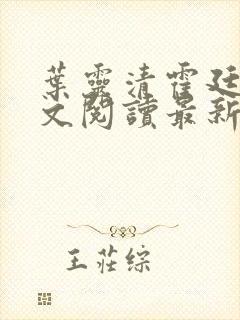 葉靈清霍廷
文閱讀最新
王莊綜